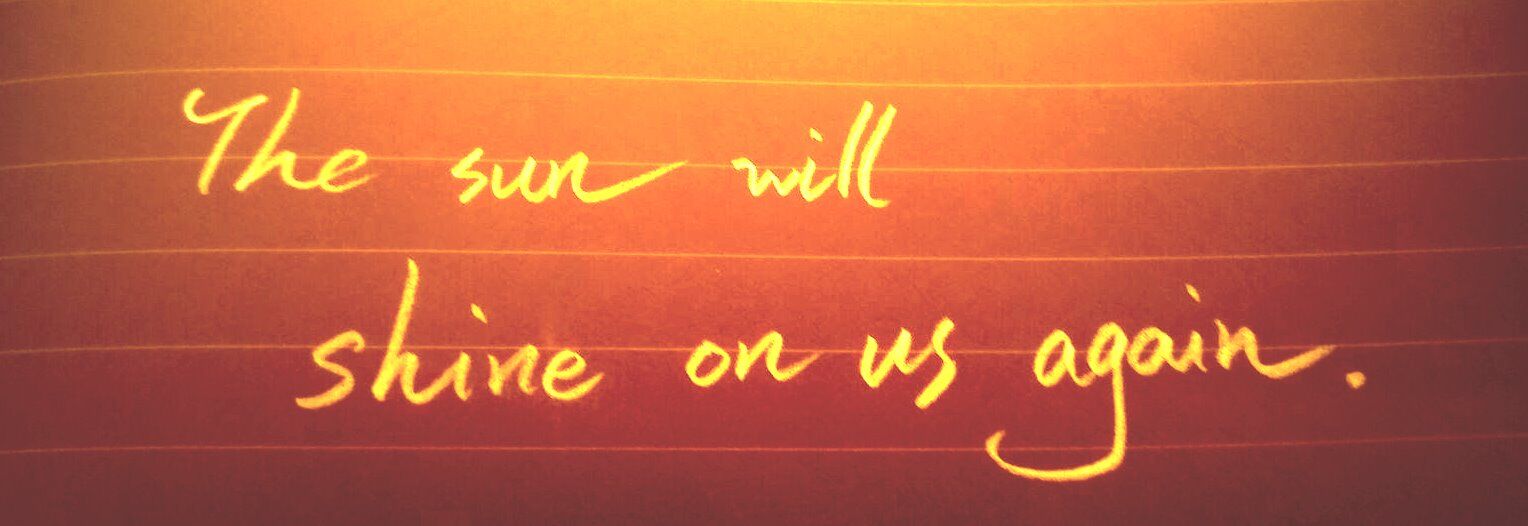 The sun will
shine on us again.